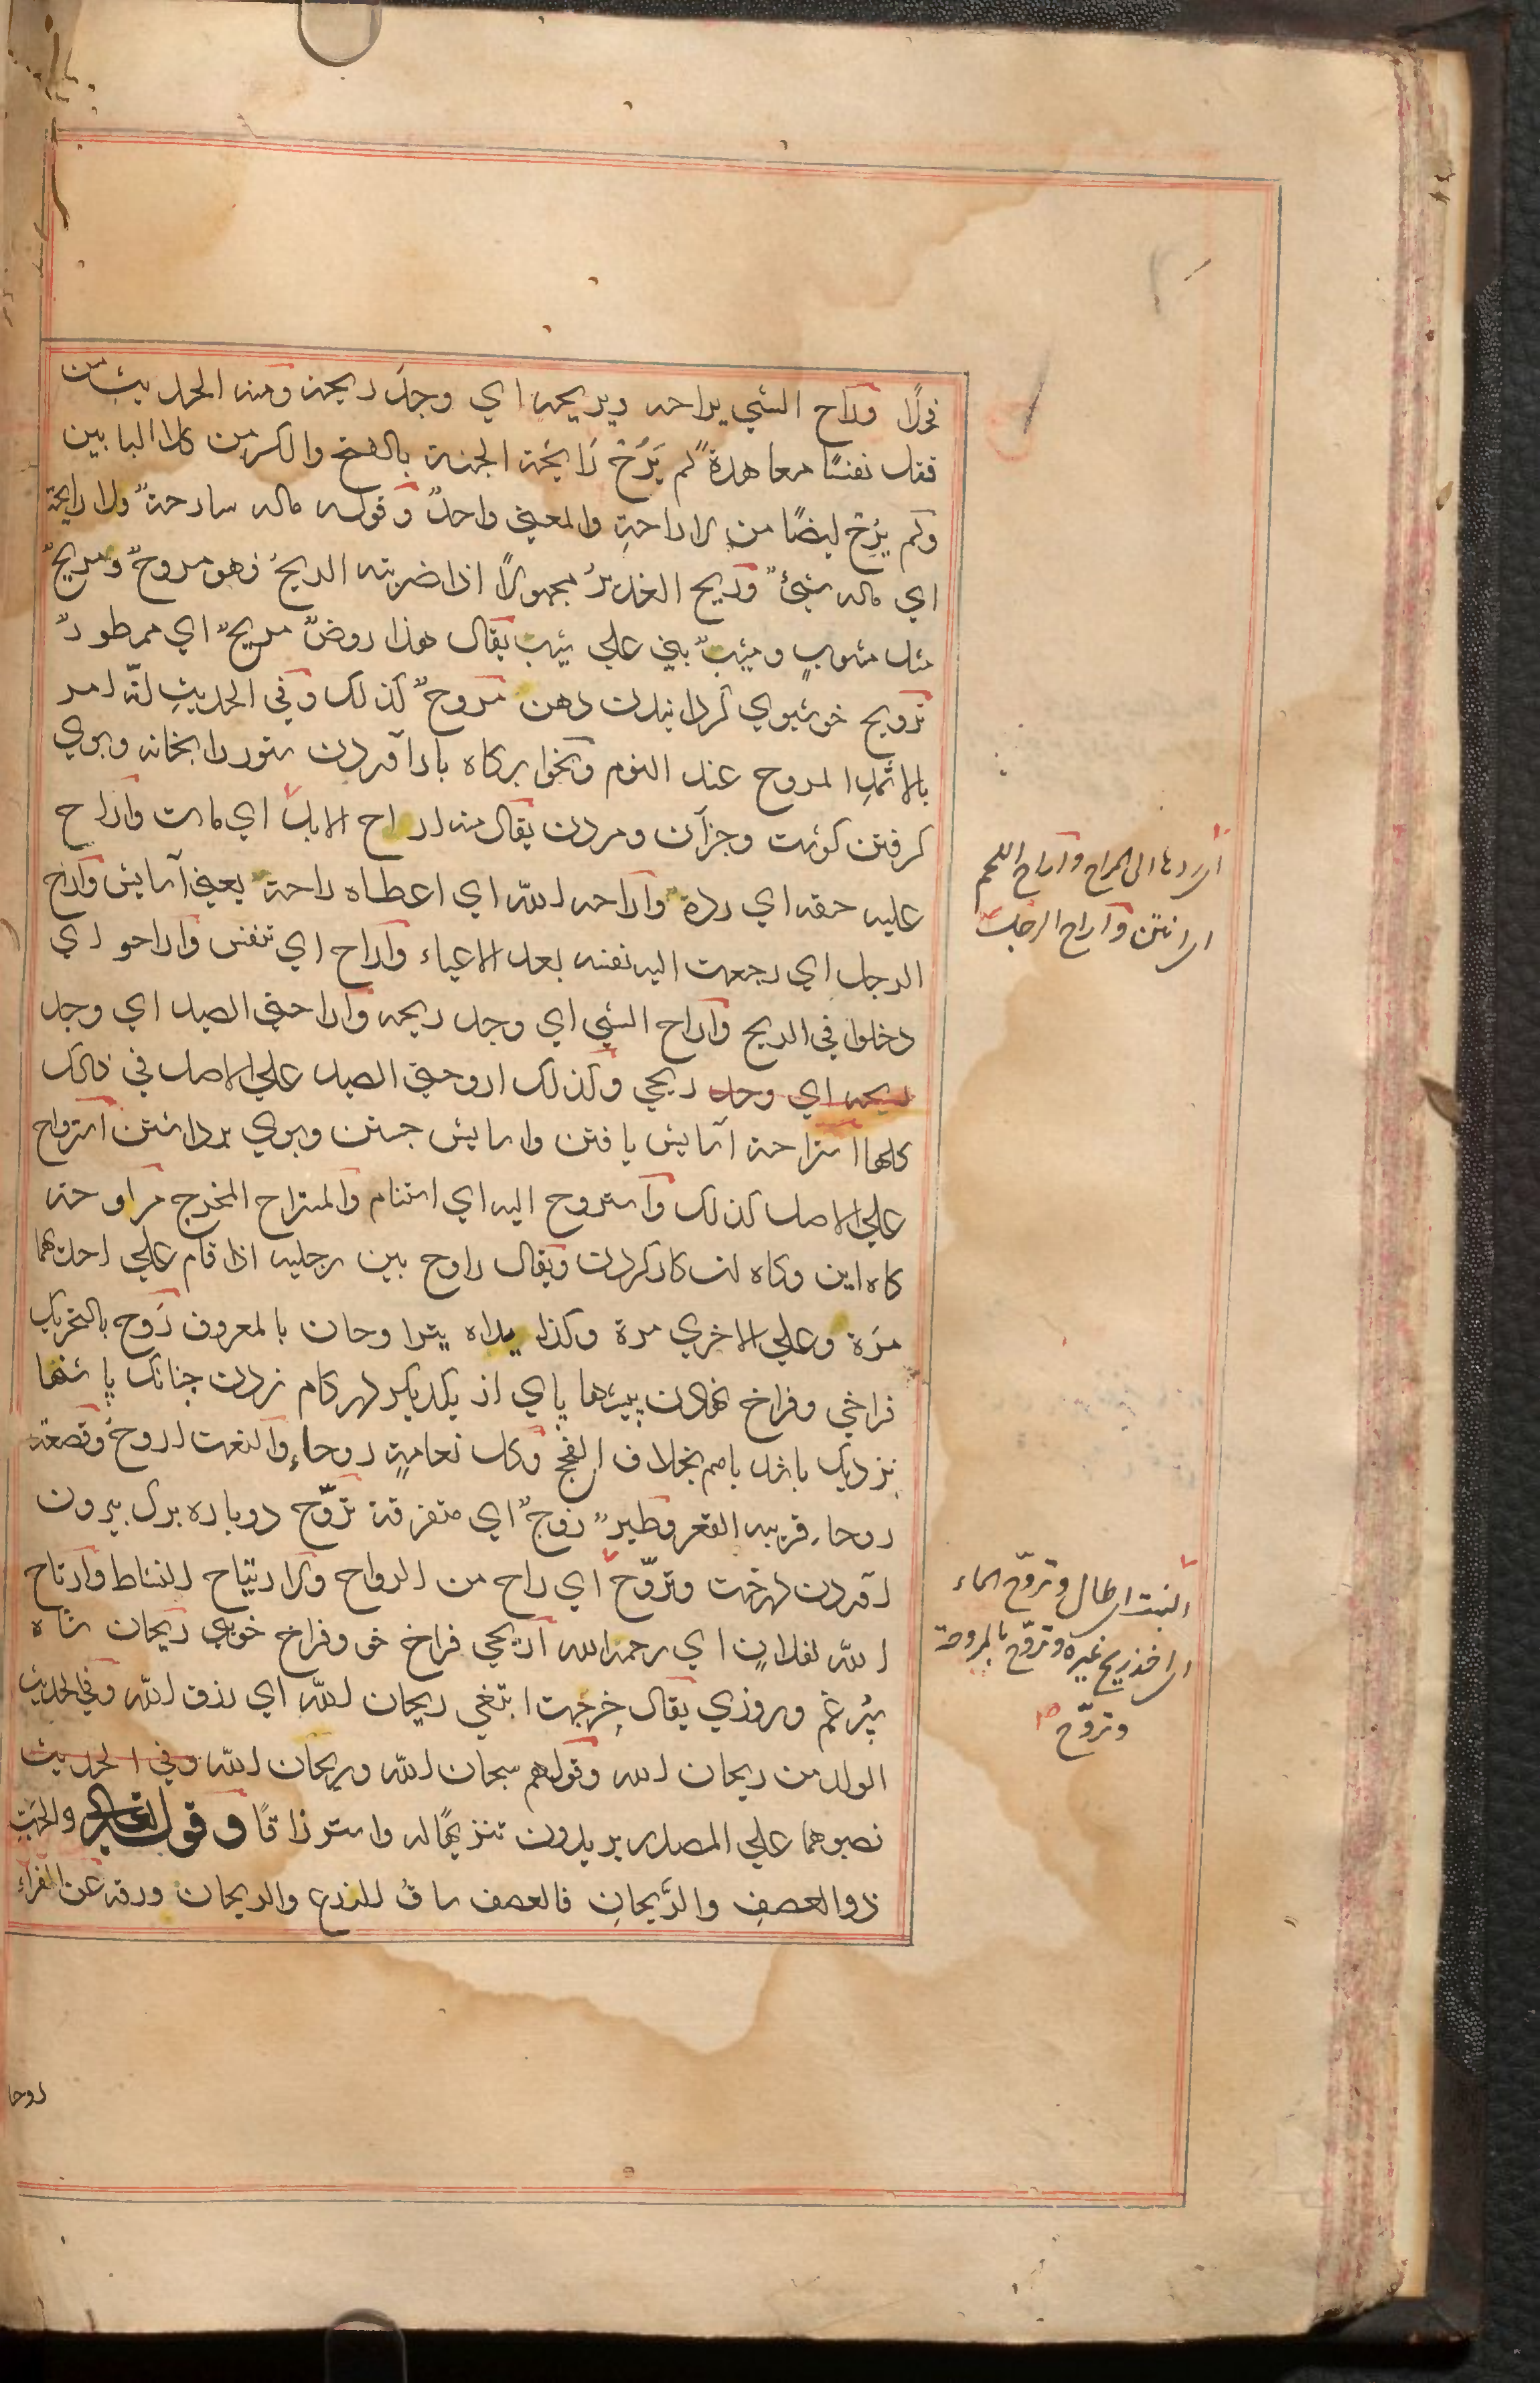 فحلًا وراح الشي يراحه ويريحه اي وجد ريحه ومنه الحديث من
قتل نفسًا معاهدة لم يَرَحْ رَايحة الجنة بالفتح والكسر من كلا البابين
ولم يُرِح ايضًا من الاراحةِ والمعني واحدٌ وقوله ماله سارحةٌ ولا رايحة
اي ماله شئٌ وريح الغديرُ مجهولًا اذا ضربته الريحُ فهو مروحٌ ومريحٌ
مثل مشوبٍ ومشيبٌ بني علي شيب يقال هذا روضٌ مريحٌ اي ممطورٌ
ترويح خوشبوي كردانيدن دهن مروحٌ كذلك وفي الحديثِ انّه امر
بالاثمدِ المروح عند النوم وبخوابركاه بازآوردن ستور را بخانه وبوي
كرفتن كوشت وجزآن ومردن يقال منه اراح الابل اي ماتت واراح
عليه حقه اي ردهُ واراحه الله اي اعطاه راحة يعني آسايش واراح
الرجل اي رجعت اليه نفسه بعد الاعياء واراح اي تنفس واراحو اي
دخلوا في الريح واراح الشي اي وجد ريحه واراحني الصيد اي وجد
ريحه اي وجد ريحي وكذلك اروحني الصيد علي الاصل في ذلك
كلها استراحة آسايش يافتن واسايش جستن وبوي برداشتن استرواح
علي الاصل كذلك واستروح اليه اي استنام والمستراح المخرج مراوحة
كاه اين وكاه ان كار كردن ويقال راوح بين رجليه اذا قام علي احدهما
مرّة وعلي الاخري مرة وكذا يداه يتراوحان بالمعروف رَوح بالتحريك
فراخي وفراخ نهادن پيشها پاي از يكديكر در كام زدن چنانك پاشنها
نزديك باشد باهم بخلاف الفحج وكل نعامةٍ روحاء والنعت اروحُ وقصعة
روحاء قريبه القعر وطيرٌ روحٌ اي متفرقة تروّح دوباره برك بيرون
اوردن درخت وتروّح اي راح من الرواح والارتياح النشاط وارتاح
الله لفلانٍ اي رحمه الله اريحي فراخ خو وفراخ خويي ريحان شاه
سپرغم وروزي يقال خرجت ابتغي ريحان الله اي رزق الله وفي الحديث
الولد من ريحان الله وقولهم سبحان الله وريحان الله وفي الحديث
نصبوهما علي المصدر يريدون تنزيهًا له واسترزاقًا وقوله تعالي والحَبّ
ذوالعصفِ والرَّيحانِ فالعصف ساقُ للزرع والريحان ورقه عن الفراء
اي ردها الي المراح واراح اللحم
اي انتن واراح الرجل
النبت اي طال وتروّح الماء
اي اخذ ريح غيره وتروّح بالمروحة
وتروّح صح
روحا